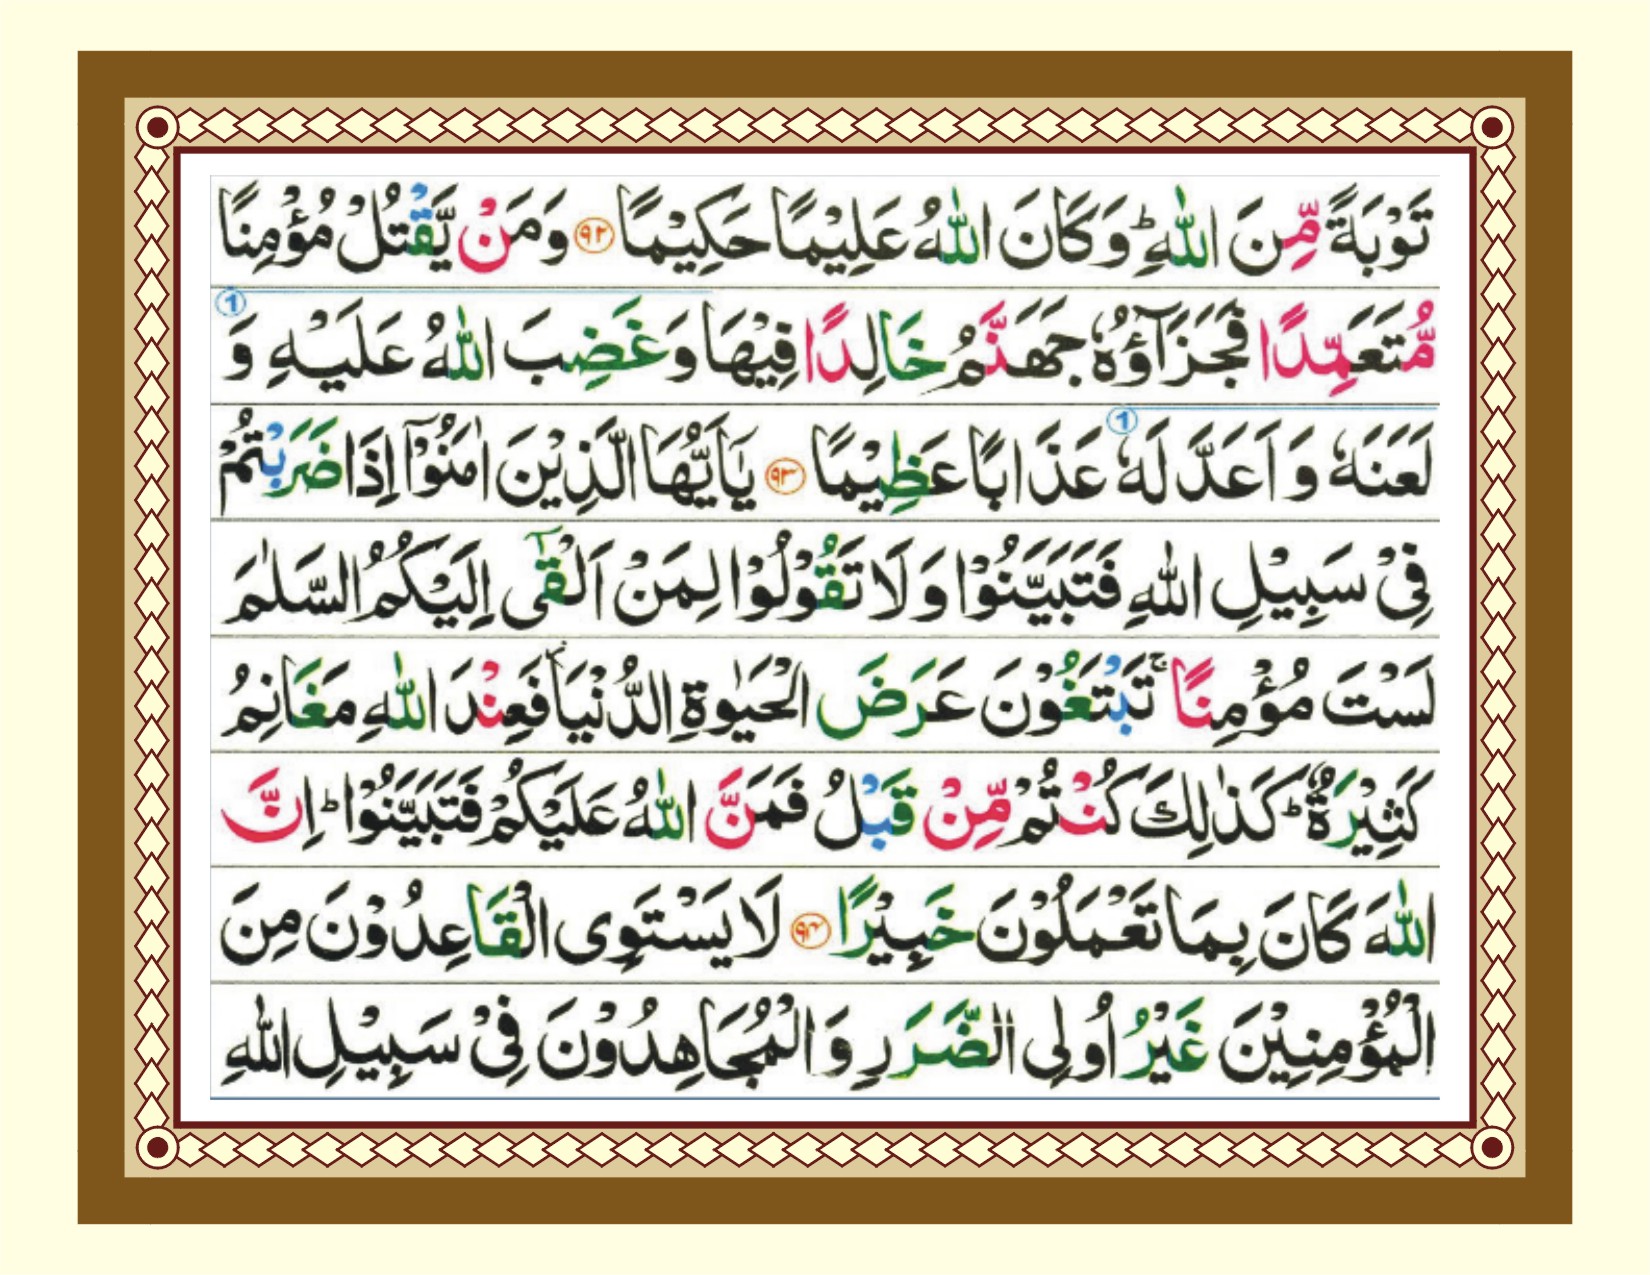 تَوْبَةً مِّنَ اللّٰهِ ؕ وَكَانَ اللّٰهُ عَلِيْمًا حَكِيْمًا ﴿۹۲﴾ وَمَنْ يَّقْتُلْ مُؤْمِنًا
مُّتَعَمِّدًا فَجَزَآؤُهٗ جَهَنَّمُ خَالِدًا فِيْهَا وَغَضِبَ اللّٰهُ عَلَيْهِ وَ 1
لَعَنَهٗ وَ اَعَدَّ لَهٗ 1 عَذَابًا عَظِيْمًا ﴿۹۳﴾ يٰۤاَيُّهَا الَّذِيْنَ اٰمَنُوْۤا اِذَا ضَرَبْتُمْ
فِىْ سَبِيْلِ اللّٰهِ فَتَبَيَّنُوْا وَلَا تَقُوْلُوْا لِمَنْ اَلْقٰٓى اِلَيْكُمُ السَّلٰمَ
لَسْتَ مُؤْمِنًا ۚ تَبْتَغُوْنَ عَرَضَ الْحَيٰوةِ الدُّنْيَا ۡ فَعِنْدَ اللّٰهِ مَغَانِمُ
كَثِيْرَةٌ ؕ كَذٰلِكَ كُنْتُمْ مِّنْ قَبْلُ فَمَنَّ اللّٰهُ عَلَيْكُمْ فَتَبَيَّنُوْا ؕ اِنَّ
اللّٰهَ كَانَ بِمَا تَعْمَلُوْنَ خَبِيْرًا ﴿۹۴﴾ لَا يَسْتَوِى الْقَاعِدُوْنَ مِنَ
الْمُؤْمِنِيْنَ غَيْرُ اُولِى الضَّرَرِ وَالْمُجَاهِدُوْنَ فِىْ سَبِيْلِ اللّٰهِ